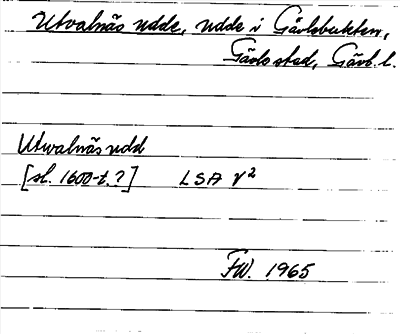 Utvalnäs udde, udde i Gävlebukten,
Gävle stad, Gävb. l.
Utwalnäs udd
[sl. 1600-t.?] LSA V²
FW. 1965